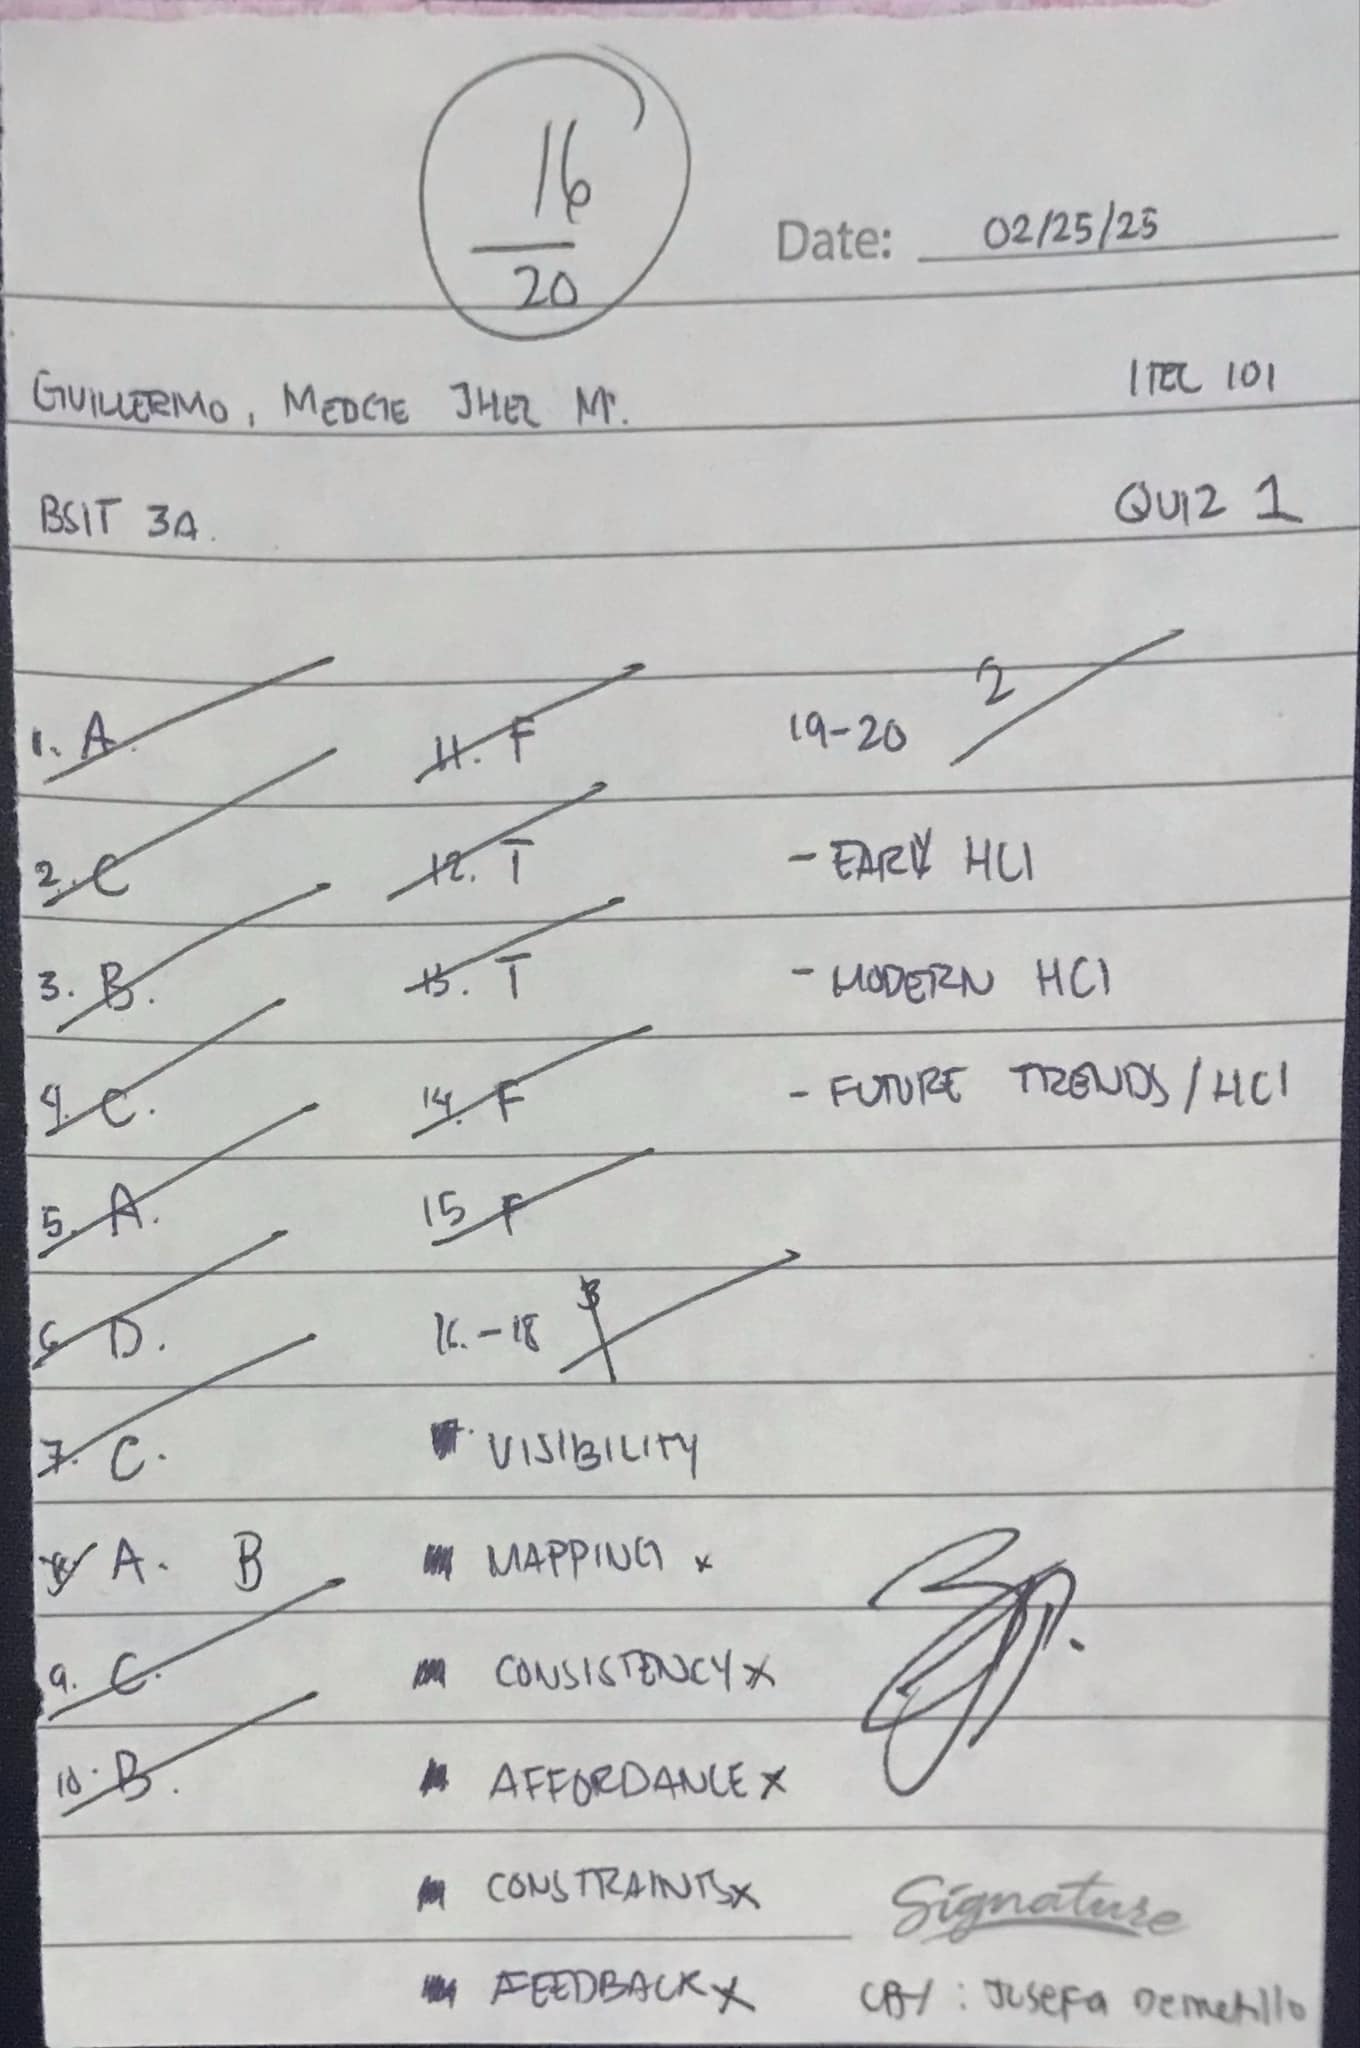 16
20
Date: 02/25/25
GUILLERMO, MEDGIE JHEZ M.
ITEC 101
BSIT 3A.
QUIZ 1
1. A.
2. C
3. B.
4. C.
5. A.
6. D.
7. C.
A. B
9. C.
10. B.
11. F
12. T
13. T
14. F
15 F
16.-18
VISIBILITY
MAPPING x
CONSISTENCY x
AFFORDANCE x
CONSTRAINTS x
FEEDBACK x
19-20 2
- EARLY HCI
- MODERN HCI
- FUTURE TRENDS/HCI
Signature
CBY: Josefa Demetillo